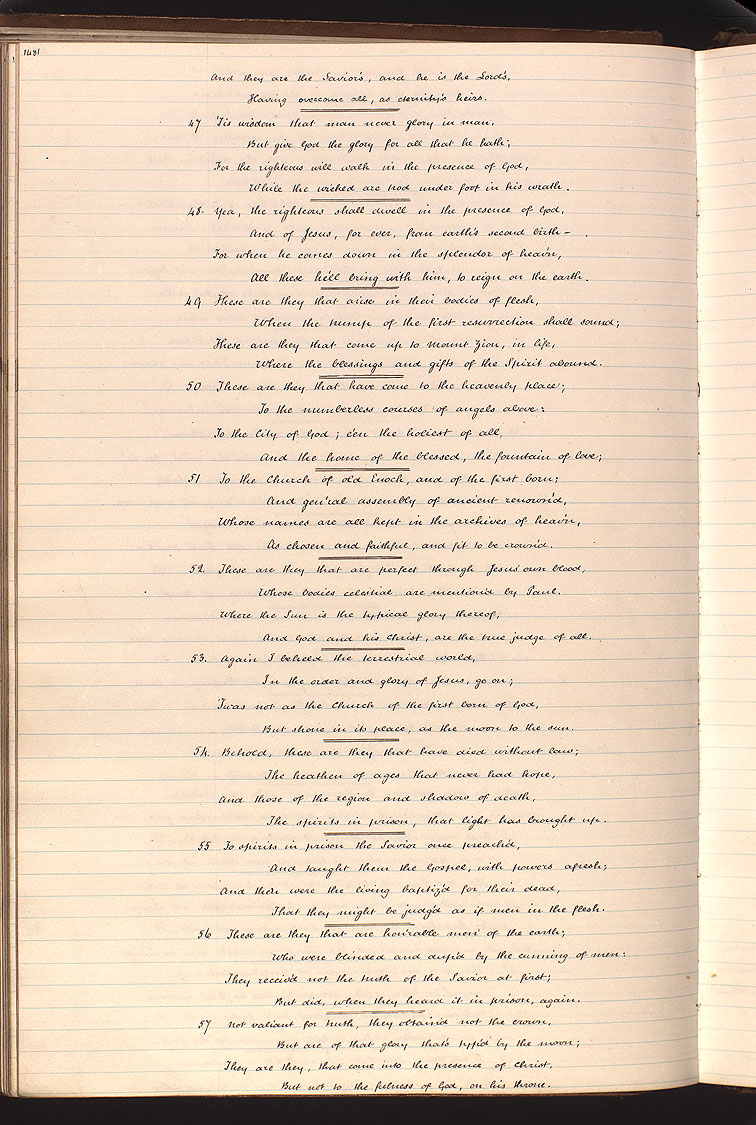 1481
And they are the Savior's, and he is the Lord's,
Having overcome all, as eternity's heirs.
47 'Tis wisdom that man never glory in man,
But give God the glory for all that he hath;
For the righteous will walk in the presence of God,
While the wicked are trod under foot in his wrath.
48. Yea, the righteous shall dwell in the presence of God,
And of Jesus, for ever, from earth's second birth—
For when he comes down in the splendor of heav'n,
All these he'll bring with him, to reign on the earth.
49 These are they that arise in their bodies of flesh,
When the trump of the first resurrection shall sound;
These are they that come up to Mount Zion, in life,
Where the blessings and gifts of the Spirit abound.
50 These are they that have come to the heavenly place;
To the numberless courses of angels above:
To the City of God; e'en the holiest of all,
And the home of the blessed, the fountain of love;
51 To the Church of old Enoch, and of the first born;
And gen'ral assembly of ancient renown'd,
Whose names are all kept in the archives of heav'n,
As chosen and faithful, and fit to be crown'd.
52. These are they that are perfect through Jesus' own blood,
Whose bodies celestial are mention'd by Paul.
Where the Sun is the typical glory thereof,
And God and his Christ, are the true judge of all.
53. Again I beheld the terrestrial world,
In the order and glory of Jesus, go on;
'Twas not as the Church of the first born of God,
But shone in its place, as the moon to the sun.
54. Behold, these are they that have died without law;
The heathen of ages that never had hope,
And those of the region and shadow of death,
The spirits in prison, that light has brought up.
55 To spirits in prison the Savior once preach'd,
And taught them the Gospel, with powers afresh;
And then were the living baptiz'd for their dead,
That they might be judg'd as if men in the flesh.
56 These are they that are hon'rable men of the earth;
Who were blinded and dup'd by the cunning of men:
They receiv'd not the truth of the Savior at first;
But did, when they heard it in prison, again.
57 Not valiant for truth, they obtain'd not the crown,
But are of that glory that's typ'd by the moon;
They are they, that come into the presence of Christ,
But not to the fulness of God, on his throne.